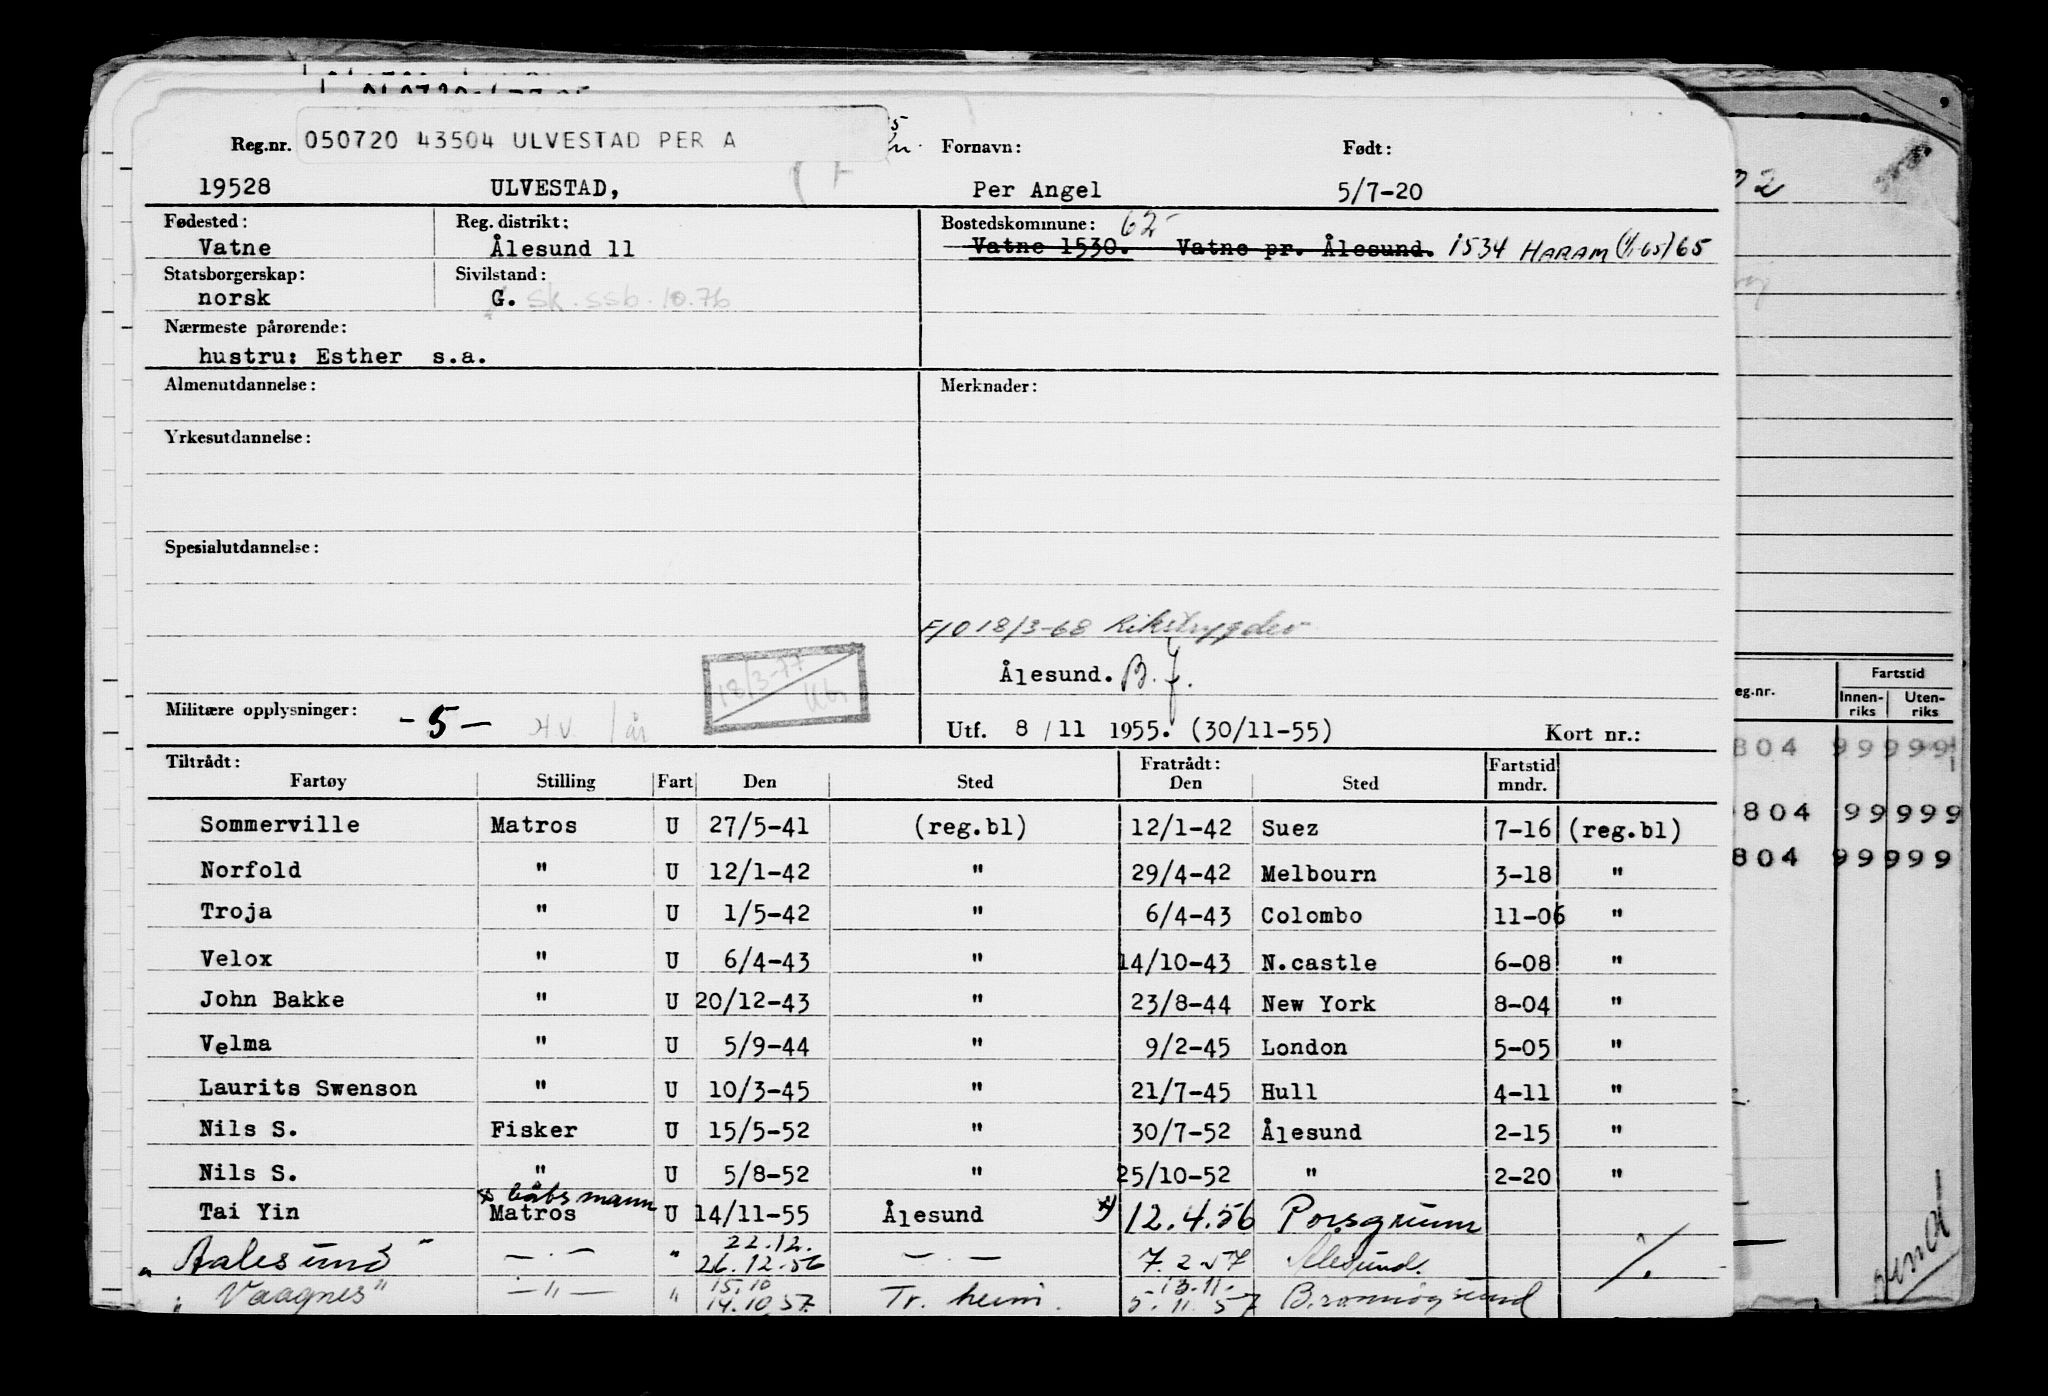 Reg.nr. 050720 43504 ULVESTAD PER A Fornavn: Født:
19528 ULVESTAD, Per Angel 5/7-20
Fødested: Reg. distrikt: Bostedskommune: 62
Vatne Ålesund 11 Vatne 1530. Vatne pr. Ålesund. 1534 HARAM (1/1-65) 65
Statsborgerskap: Sivilstand:
norsk G. sk. ssb. 10.76
Nærmeste pårørende:
hustru: Esther s.a.
Almenutdannelse: Merknader:
Yrkesutdannelse:
Spesialutdannelse:
F/O 18/3-68 Rikstrygdev
18/3-77
Ålesund. B.J.
Militære opplysninger: -5- H.V. 1 år Utf. 8/11 1955. (30/11-55) Kort nr.:
Tiltrådt: Fratrådt: Fartstid
Fartøy Stilling Fart Den Sted Den Sted mndr.
Sommerville Matros U 27/5-41 (reg.bl) 12/1-42 Suez 7-16 (reg.bl)
Norfold " U 12/1-42 " 29/4-42 Melbourn 3-18 "
Troja " U 1/5-42 " 6/4-43 Colombo 11-06 "
Velox " U 6/4-43 " 14/10-43 N.castle 6-08 "
John Bakke " U 20/12-43 " 23/8-44 New York 8-04 "
Velma " U 5/9-44 " 9/2-45 London 5-05 "
Laurits Swenson " U 10/3-45 " 21/7-45 Hull 4-11 "
Nils S. Fisker U 15/5-52 " 30/7-52 Ålesund 2-15 "
Nils S. " U 5/8-52 " 25/10-52 " 2-20 "
x båtsmann
Tai Yin Matros U 14/11-55 Ålesund x) 12.4.56 Porsgrunn
22.12.
"Aalesund" — " — " 26.12.56 — " — 7.2.57 Ålesund. /.
15.10 13.11.
"Vaagnes" — " — " 14.10.57. Tr. heim. 5.11.57 Brønnøysund
Fartstid
eg.nr. Innen- Uten-
riks riks
804 99 999
804 99 999
804 99 999